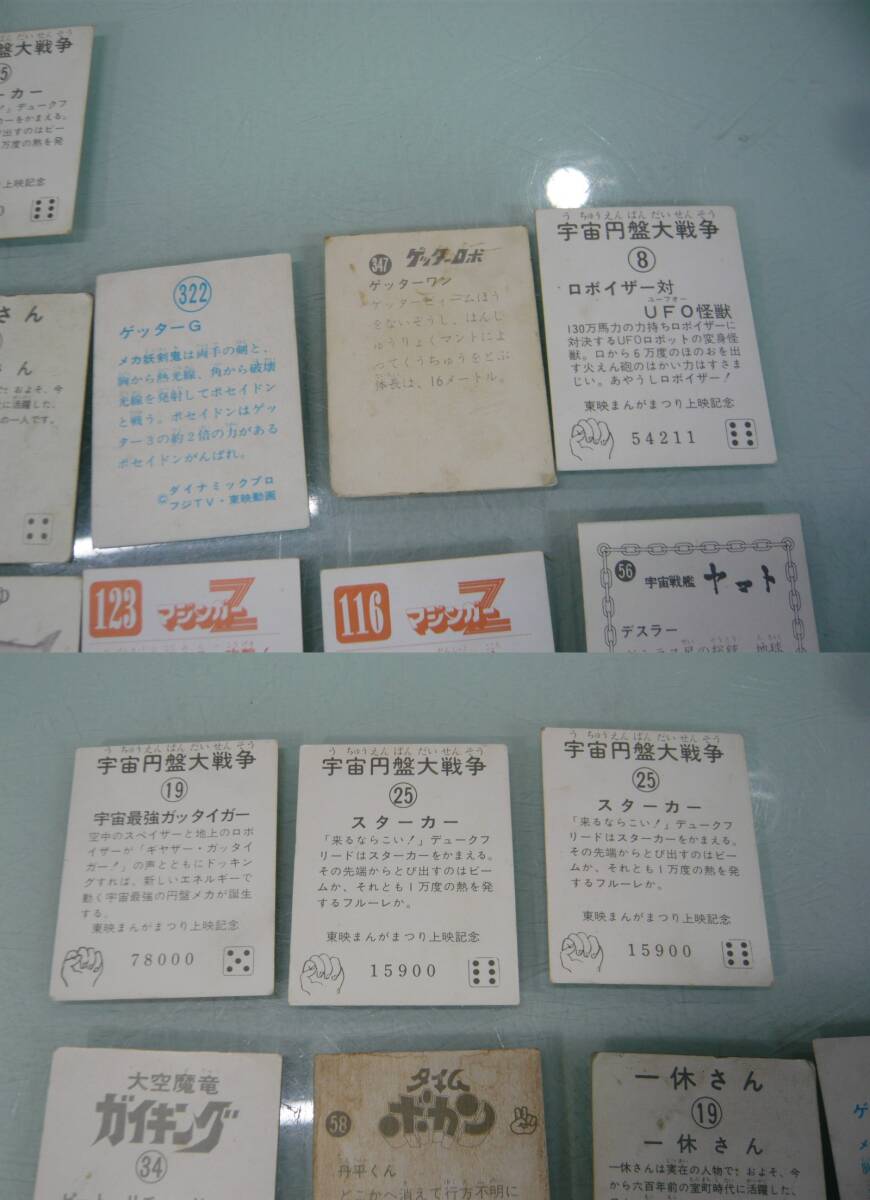 盤大戦争
ーカー
!」デュークフ
カーをかまえる。
び出すのはビー
万度の熱を発
上映記念
さん
さん
で? およそ、今
代に活躍した、
の一人です。
322
ゲッターG
メカ妖剣鬼は両手の剣と、
胸から熱光線、角から破壊
光線を発射してポセイドン
と戦う。ポセイドンはゲッ
ター3の約2倍の力がある
ポセイドンがんばれ。
ダイナミックプロ
©フジTV・東映動画
347 ゲッターロボ
ゲッターワン
ゲッタービィームほう
をないぞうし、はんじ
ゅうりょくマントによ
ってくうちゅうをとぶ
体長は、16メートル。
う ちゅうえん ばん だい せん そう
宇宙円盤大戦争
8
ロボイザー対
ユーフォー
UFO怪獣
130万馬力の力持ちロボイザーに
対決するUFOロボットの変身怪
獣。口から6万度のほのおを出
す火えん砲のはかい力はすさま
じい。あやうしロボイザー!
東映まんがまつり上映記念
54211
123 マジンガーZ
116 マジンガーZ
56 宇宙戦艦 ヤマト
デスラー
う ちゅうえん ばん だい せん そう
宇宙円盤大戦争
19
宇宙最強ガッタイガー
空中のスペイザーと地上のロボ
イザーが「ギヤザー・ガッタイ
ガー!」の声とともにドッキン
グすれば、新しいエネルギーで
動く宇宙最強の円盤メカが誕生
する。
東映まんがまつり上映記念
78000
う ちゅうえん ばん だい せん そう
宇宙円盤大戦争
25
スターカー
「来るならこい!」デュークフ
リードはスターカーをかまえる。
その先端からとび出すのはビー
ムか、それとも1万度の熱を発
するフルーレか。
東映まんがまつり上映記念
15900
う ちゅうえん ばん だい せん そう
宇宙円盤大戦争
25
スターカー
「来るならこい!」デュークフ
リードはスターカーをかまえる。
その先端からとび出すのはビー
ムか、それとも1万度の熱を発
するフルーレか。
東映まんがまつり上映記念
15900
大空魔竜
ガイキング
34
タイム
ボカン
58
丹平くん
どこかへ消えて行方不明に
一休さん
19
一休さん
一休さんは実在の人物で? およそ、今
から六百年前の室町時代に活躍した、